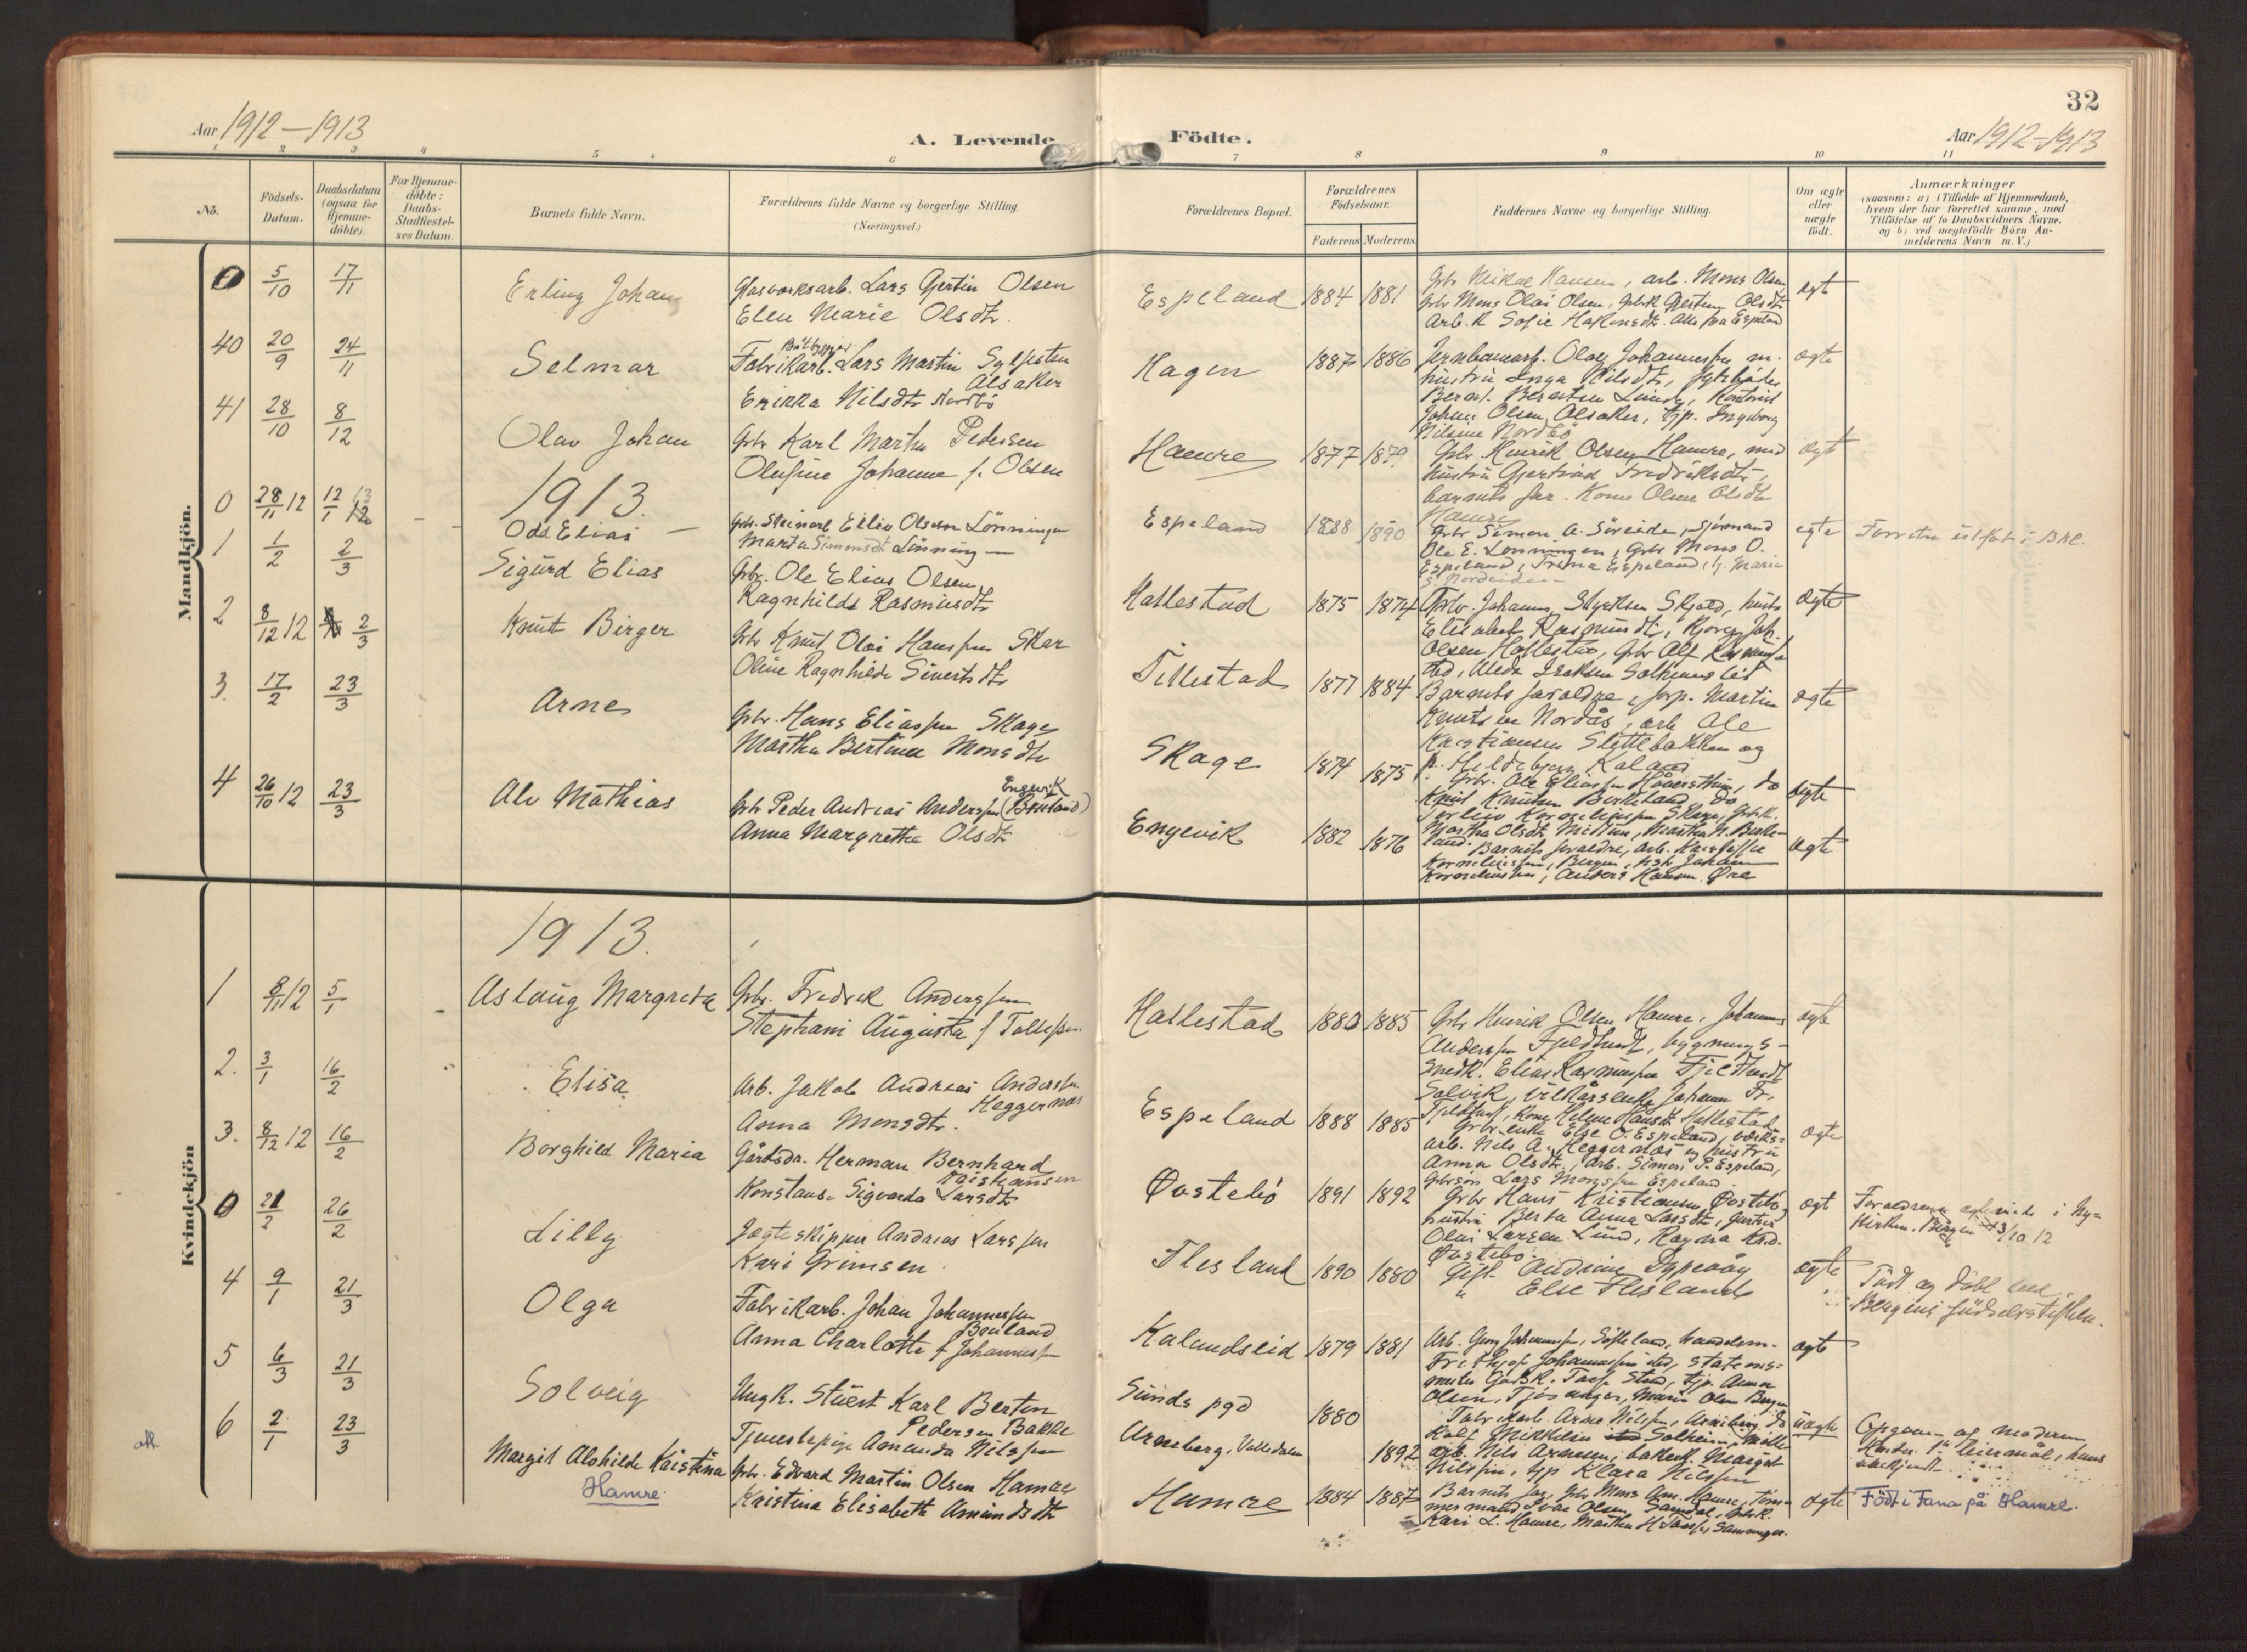 32
Aar 1912-1913
A. Levende
Födte.
Aar 1912-1913
1 2 3 4 5 6 7 8 9 10 11
No.
Födsels-
Datum.
Daabsdatum
(ogsaa for
Hjemme-
döbte).
For Hjemme-
döbte:
Daabs-
Stadfæstel-
ses Datum.
Barnets fulde Navn.
Forældrenes fulde Navne og borgerlige Stilling.
(Næringsvei.)
Forældrenes Bopæl.
Forældrenes
Födselsaar.
Faderens Moderens
Faddernes Navne og borgerlige Stilling.
Om ægte
eller
uægte
födt.
Anmærkninger
(saasom: a) i Tilfælde af Hjemmedaab,
hvem der har forrettet samme, med
Tilföielse af to Daabsvidners Navne,
og b) ved uægtefödte Börn An-
melderens Navn m. V.)
Mandkjön.
0 5/10 17/11 Erling Johan
Glasværksarb. Lars Gjertin Olsen
Elen Marie Olsdtr.
Espeland 1884 1881
Grbr Mikal Hansen, arb. Mons Olsen
Grbr Mons Olai Olsen, Olsdtr
Arb. K Sofie Alle fra Espeland
ægt
40 20/9 24/11 Selmar
Båtbygger
Fabrikarb. Lars Martin
Alsaker
Erikka Nilsdtr Nordbö
Hagen 1887 1886
Jernbanearb. Olav Johannessen m.
hustru Inga Nilsdtr,
Bernt Berntsen Lund, Kontorist
Johan Olsen Alsaker, tjp. Ingeborg
Nilsine Nordbö
ægte
41 28/10 8/12 Olav Johan
Grbr Karl Martin Pedersen
Olufine Johanne f. Olsen
Hamre 1877 1879
Grbr. Henrik Olsen Hamre, med
hustru Gjertrud Fredriksdtr,
barnets far. Kone Oline Olsdtr
Hamre
ægt
1913.
0 28/11 12 12/1 13 Odd Elias
Grbr. Steinert Elliv Olsen Lönningen
Marta Simonsdt Lönning
Espeland 1888 1890
Grbr Simon A. Söreide, Sjömand
Ole E. Lönningen, Grbr Mons O.
Espeland, Trina Espeland, Marie
S Nordeide
egte
1 1/2 2/3 Sigurd Elias
Grbr. Ole Elias Olsen
Ragnhilde Rasmusdtr
Hallestad 1875 1874
Grbr. Johannes Skjold, hustr
Elisabet Rasmusdtr, Joh.
Olsen Hallestad, Grbr Alf
ægte
2 8/12 12 2/3 Knut Birger
Grbr Knut Olai Hanssen Skar
Oline Ragnhilde Sivertsdtr
Tillestad 1877 1884
Barnets foraeldre, Martin
Knutsen Nordås, arb Ole
Kristiansen Slettebakken og
p. Kaland
ægte
3. 17/2 23/3 Arne
Grbr. Hans Eliassen Skage
Martha Bertine Monsdtr
Skage 1874 1875
Grbr. Ole Eliassen do
Knut Knutsen Birkeland, do
Korneliussen Skage, Grbk.
Martha Olsdtr Midtun, Martha N. Birke-
land.
ægte
4 26/10 12 23/3 Alv Mathias
Grbr Peder Andreas Anderssen (Bouland)
Engevik
Anna Margrethe Olsdtr
Engevik 1882 1876
Barnets foraeldre, arb. Kristoffer
Korneliussen, Bergen, Johan
Korneliussen, Anders Hansen. Øre
ægte
Kvindekjön
1913.
1 8/11 12 5/1 Aslaug Margreta
Grbr. Fredrik Anderssen
Stephani Augusta f Tollefsen
Hallestad 1880 1885
Grbr Henrik Olsen Hamre, Johannes
Anderssen Fjeldtvedt, bygnings-
snedk. Elias Rasmussen Fjeldtvedt
Solvik, vilkårsenke Johanne Fr.
Fjeldtvedt, Kone Helene Hansdtr Hallestad
ægte
2. 3/1 16/2 Elisa
Arb. Jakob Andreas Anderssen
Heggernæs
Anna Monsdtr.
Espeland 1888 1885
Grbr.enke Else O. Espeland, værks-
arb. Nils A. Heggernæs og hustru
Anna Olsdtr., arb. Simon P. Espeland,
Grbrsön Lars Monssen Espeland
ægte
3. 8/12 12 16/2 Borghild Maria
Gårdsda. Herman Bernhard
Kristiansen
Konstanse Sigvarda Larsdtr
Øvstebö 1891 1892
Grbr Hans Kristiansen Øvstebö,
hustru Berta Anna Larsdtr, gartner
Olai Larsen Lund, Ragna Krd.
Øvstebö.
ægt
Foraeldrene ægteviede i Ny-
kirken. Bergen 13/10 12
0 21/2 26/2 Lilly
Jægteskipper Andreas Larssen
Kari Grimsen
Flesland 1890 1880
Gift Andrine Dypevåg
" Else Flesland
ægte
Födt og döbt ved
Bergens födselsstiftelse.
4 9/1 21/3 Olga
Fabrikarb. Johan Johannessen
Bouland
Anna Charlotte f Johannessen
Kalandseid 1879 1881
Arb. Georg Johannessen, Söfteland, handelsm.
Fritjof Johannessen sted, stations-
mester Tjp. Anna
Olsen, Marie Olsen Bergen
ægte
5 6/3 21/3 Solveig
Ungk. Stuert Karl Bertin
Pedersen Bakke
Tjenestepige Amanda Nilssen
Sunds pgd
Arneberg. Valledalen
1880 1892
Fabrikarb. Arne Nilssen, Arneberg do
Rolf Mikkelsen Solheim,
arb. Nils Arnesen, bakerk. Margit
Nilssen, tjp Klara Nilssen
uægte
Opgaven og moderen
6 2/1 23/3 Margit Alvhilde Kristina
Hamre.
att.
Grbr. Edvard Martin Olsen Hamre
Kristina Elisabeth Amundsdtr
Hamre 1884 1887
Barnets far, Grbr Mons Am. Hamre, töm-
mermand Ivar Olsen Samdal, Grbk.
Kari L. Hamre, Martha
ægte
Födt i Fana på Hamre.